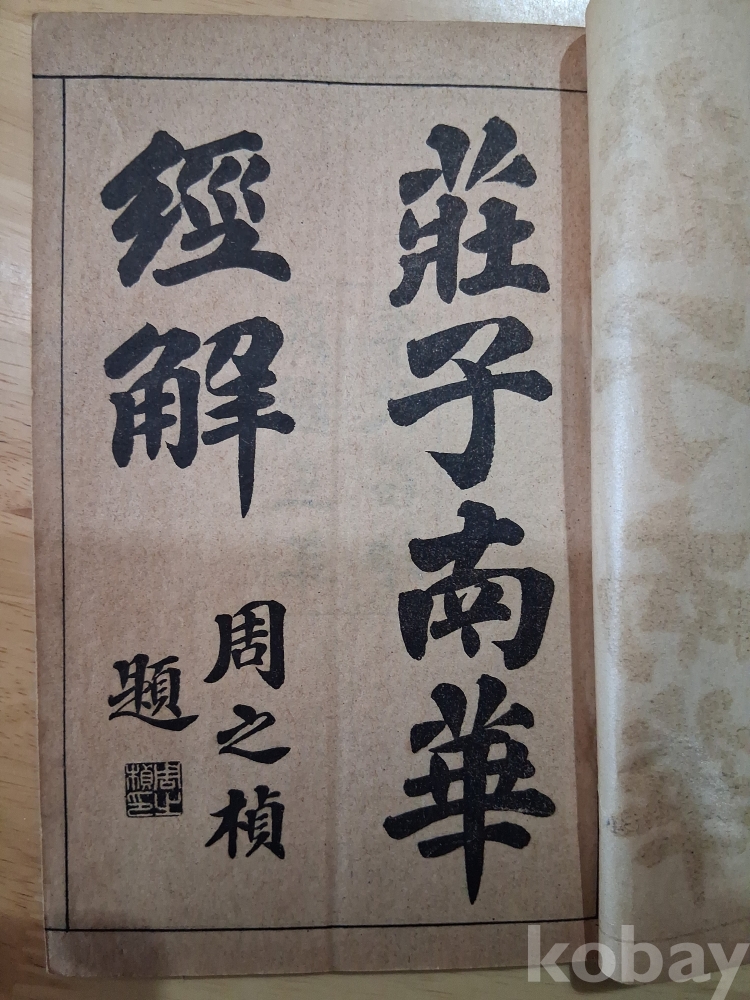 莊子南華
經解
周之楨
題
周之
楨印
kobay